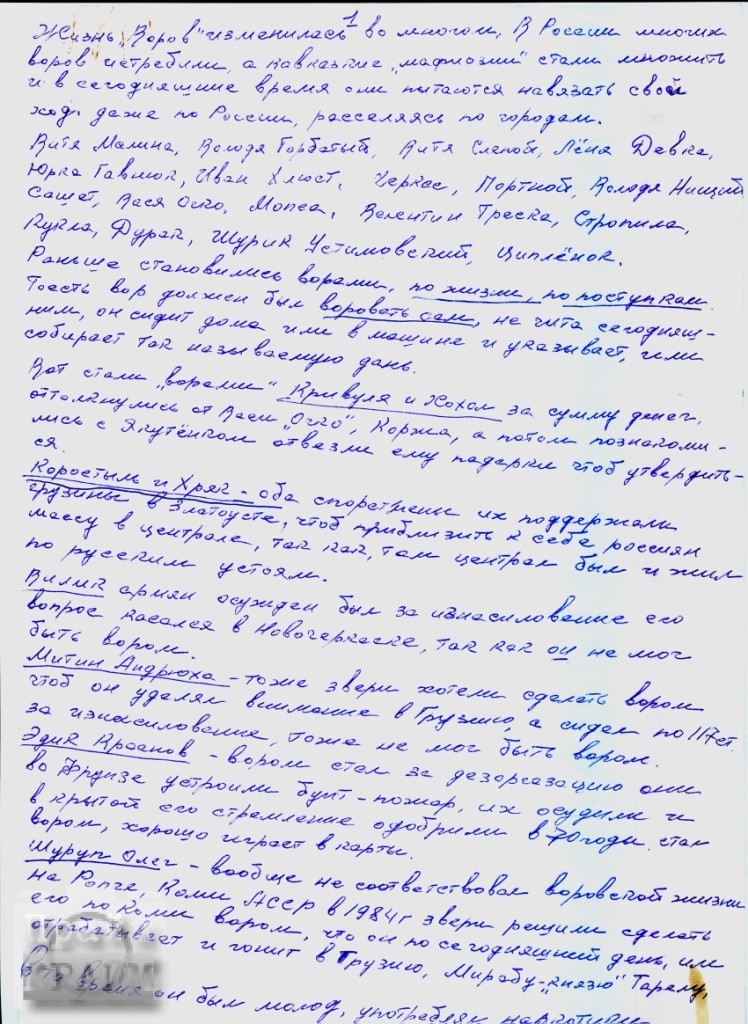 1
Жизнь „Воров" изменилась во многом, В России многих
воров истребили, а кавказкие „мафиозии" стали множить
и в сегодняшние время они пытаются навязать свой
ход даже по России, расселяясь по городам.
Витя Малина, Володя Горбатый, Витя Слепой, Лёня Девка,
Юрка Гавнюк, Иван Хлюст, Черкес, Портной, Володя Нищий
Сашет, Вася Очко, Мопса, Валентин Треска, Стропила,
Кукла, Дурак, Шурик Устимовский, Циплёнок.
Раньше становились ворами, по жизни, по поступкам.
Тоесть вор должен был воровать сам, не чита сегодняш-
ним, он сидит дома или в машине и указывает, или
собирает так называемую дань.
Вот стали „ворами" Кривуля и Хохол за сумму денег.
оттолкнулись от Васи „Очко", Коржа, а потом познакоми-
лись с Якутёнком отвезли ему падарки чтоб утвердить-
ся.
Коростыль и Хряк - оба спортсмены их поддержали
грузины в Златоусте, чтоб приблизить к себе россиян
массу в централе, так как, там централ был и жил
по русским устоям.
Вилик армян осужден был за изнасилование его
вопрос касался в Новочеркаске, так как он не мог
быть вором.
Митин Андрюха - тоже звери хотели сделать вором
чтоб он уделял внимание в Грузию, а сидел по 117 ст.
за изнасилование, тоже не мог быть вором.
Эдик Краснов - вором стал за дезоргазацию они
во Фрунзе устроили бунт - пожар, их осудили и
в крытой его стремление одобрили в 70 годы. стал
вором, хорошо играет в карты.
Шуруп Олег - вообще не соответствовал воровской жизни
на Ропче, Коми АССР в 1984г звери решили сделать
его по Коми вором, что он по сегодняшний день, им
отрабатывает и гонит в Грузию, Мирабу - „князю" Тарелу,
в то время он был молод, употреблял наркотики